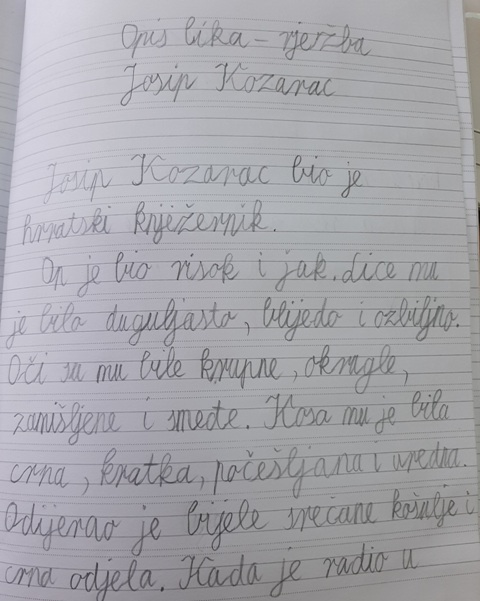 Opis lika – vježba
Josip Kozarac
Josip Kozarac bio je
hrvatski književnik.
On je bio visok i jak. Lice mu
je bilo duguljasto, blijedo i ozbiljno.
Oči su mu bile krupne, okrugle,
zamišljene i smeđe. Kosa mu je bila
crna, kratka, počešljana i uredna.
Odijevao je bijele svečane košulje i
crna odjela. Kada je radio u